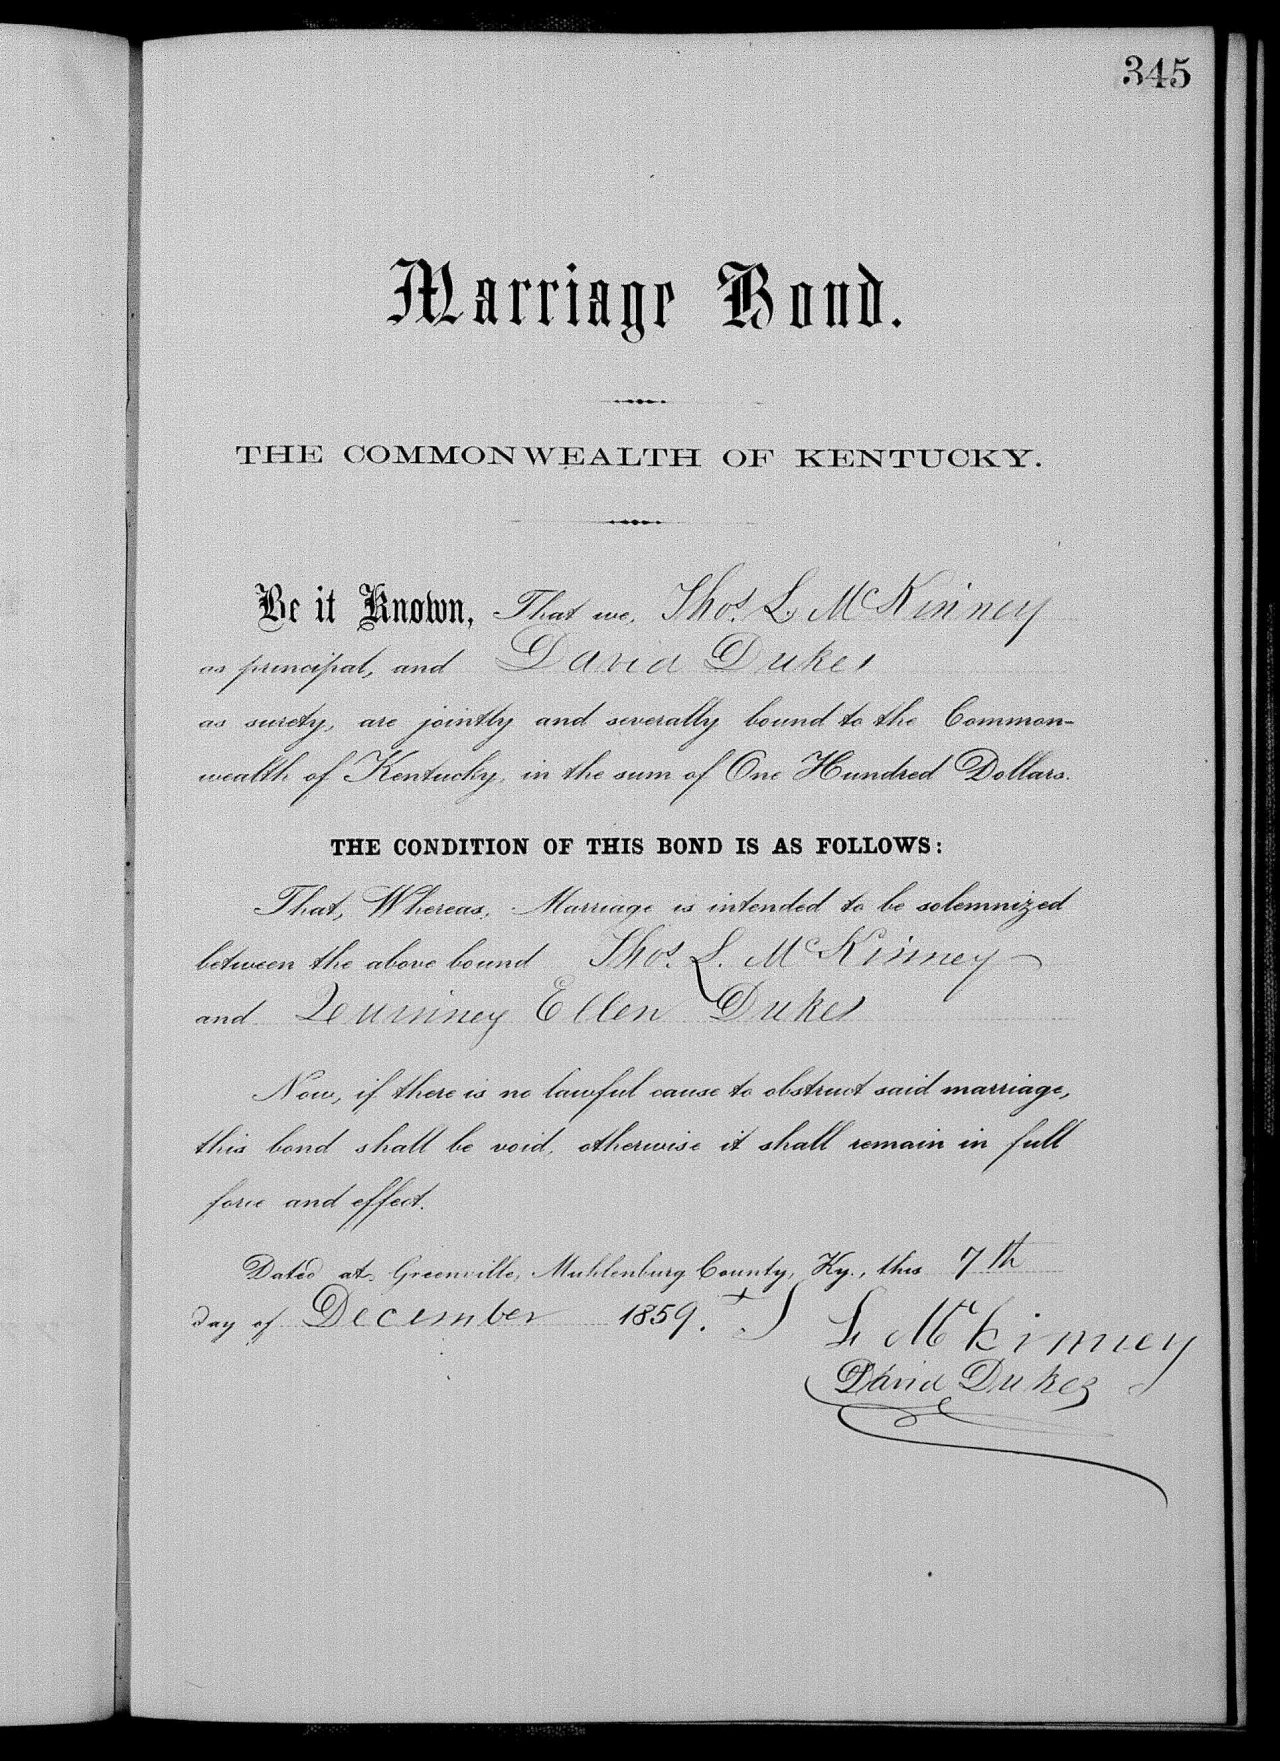 345
Marriage Bond.
THE COMMONWEALTH OF KENTUCKY.
Be it Known, That we, Thos. L. McKinney
as principal, and David Dukes
as surety, are jointly and severally bound to the Common-
wealth of Kentucky, in the sum of One Hundred Dollars.
THE CONDITION OF THIS BOND IS AS FOLLOWS:
That, Whereas, Marriage is intended to be solemnized
between the above bound Thos. L. McKinney
and Ellen Dukes
Now, if there is no lawful cause to obstruct said marriage,
this bond shall be void, otherwise it shall remain in full
force and effect.
Dated at Greenville, Muhlenburg County, Ky., this 7th
day of December 1859.
L McKinney
David Dukes